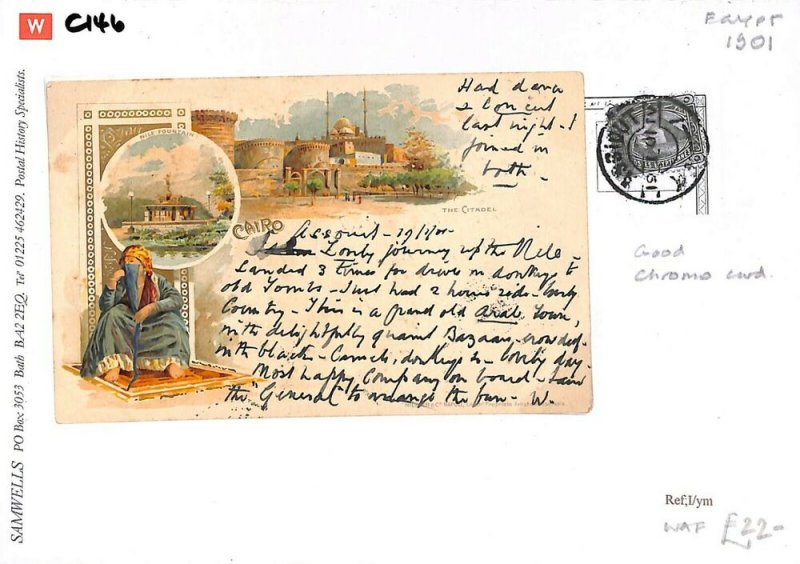 W
C146
Egypt
1901
SAMWELLS PO Box 3053 Bath BA2 2EQ. Tel 01225 462429. Postal History Specialists.
Had dance
& Concert
last night - I
joined in
both -
NILE FOUNTAIN
THE CITADEL
CAIRO
Assouit - 19/1/01
Lovely journey up the Nile -
Landed 3 times for drives on donkeys to
old Tombs - Just had 2 hours ride - lovely
Country - This is a grand old Arab town,
with delightfully quaint Bazaar, crowded
with blacks - Camels, donkeys &c - lovely day -
Most happy Company on board - I am
the "General" to arrange the fun - W.
Good
chromo card.
Ref,I/ym
WAF £22-